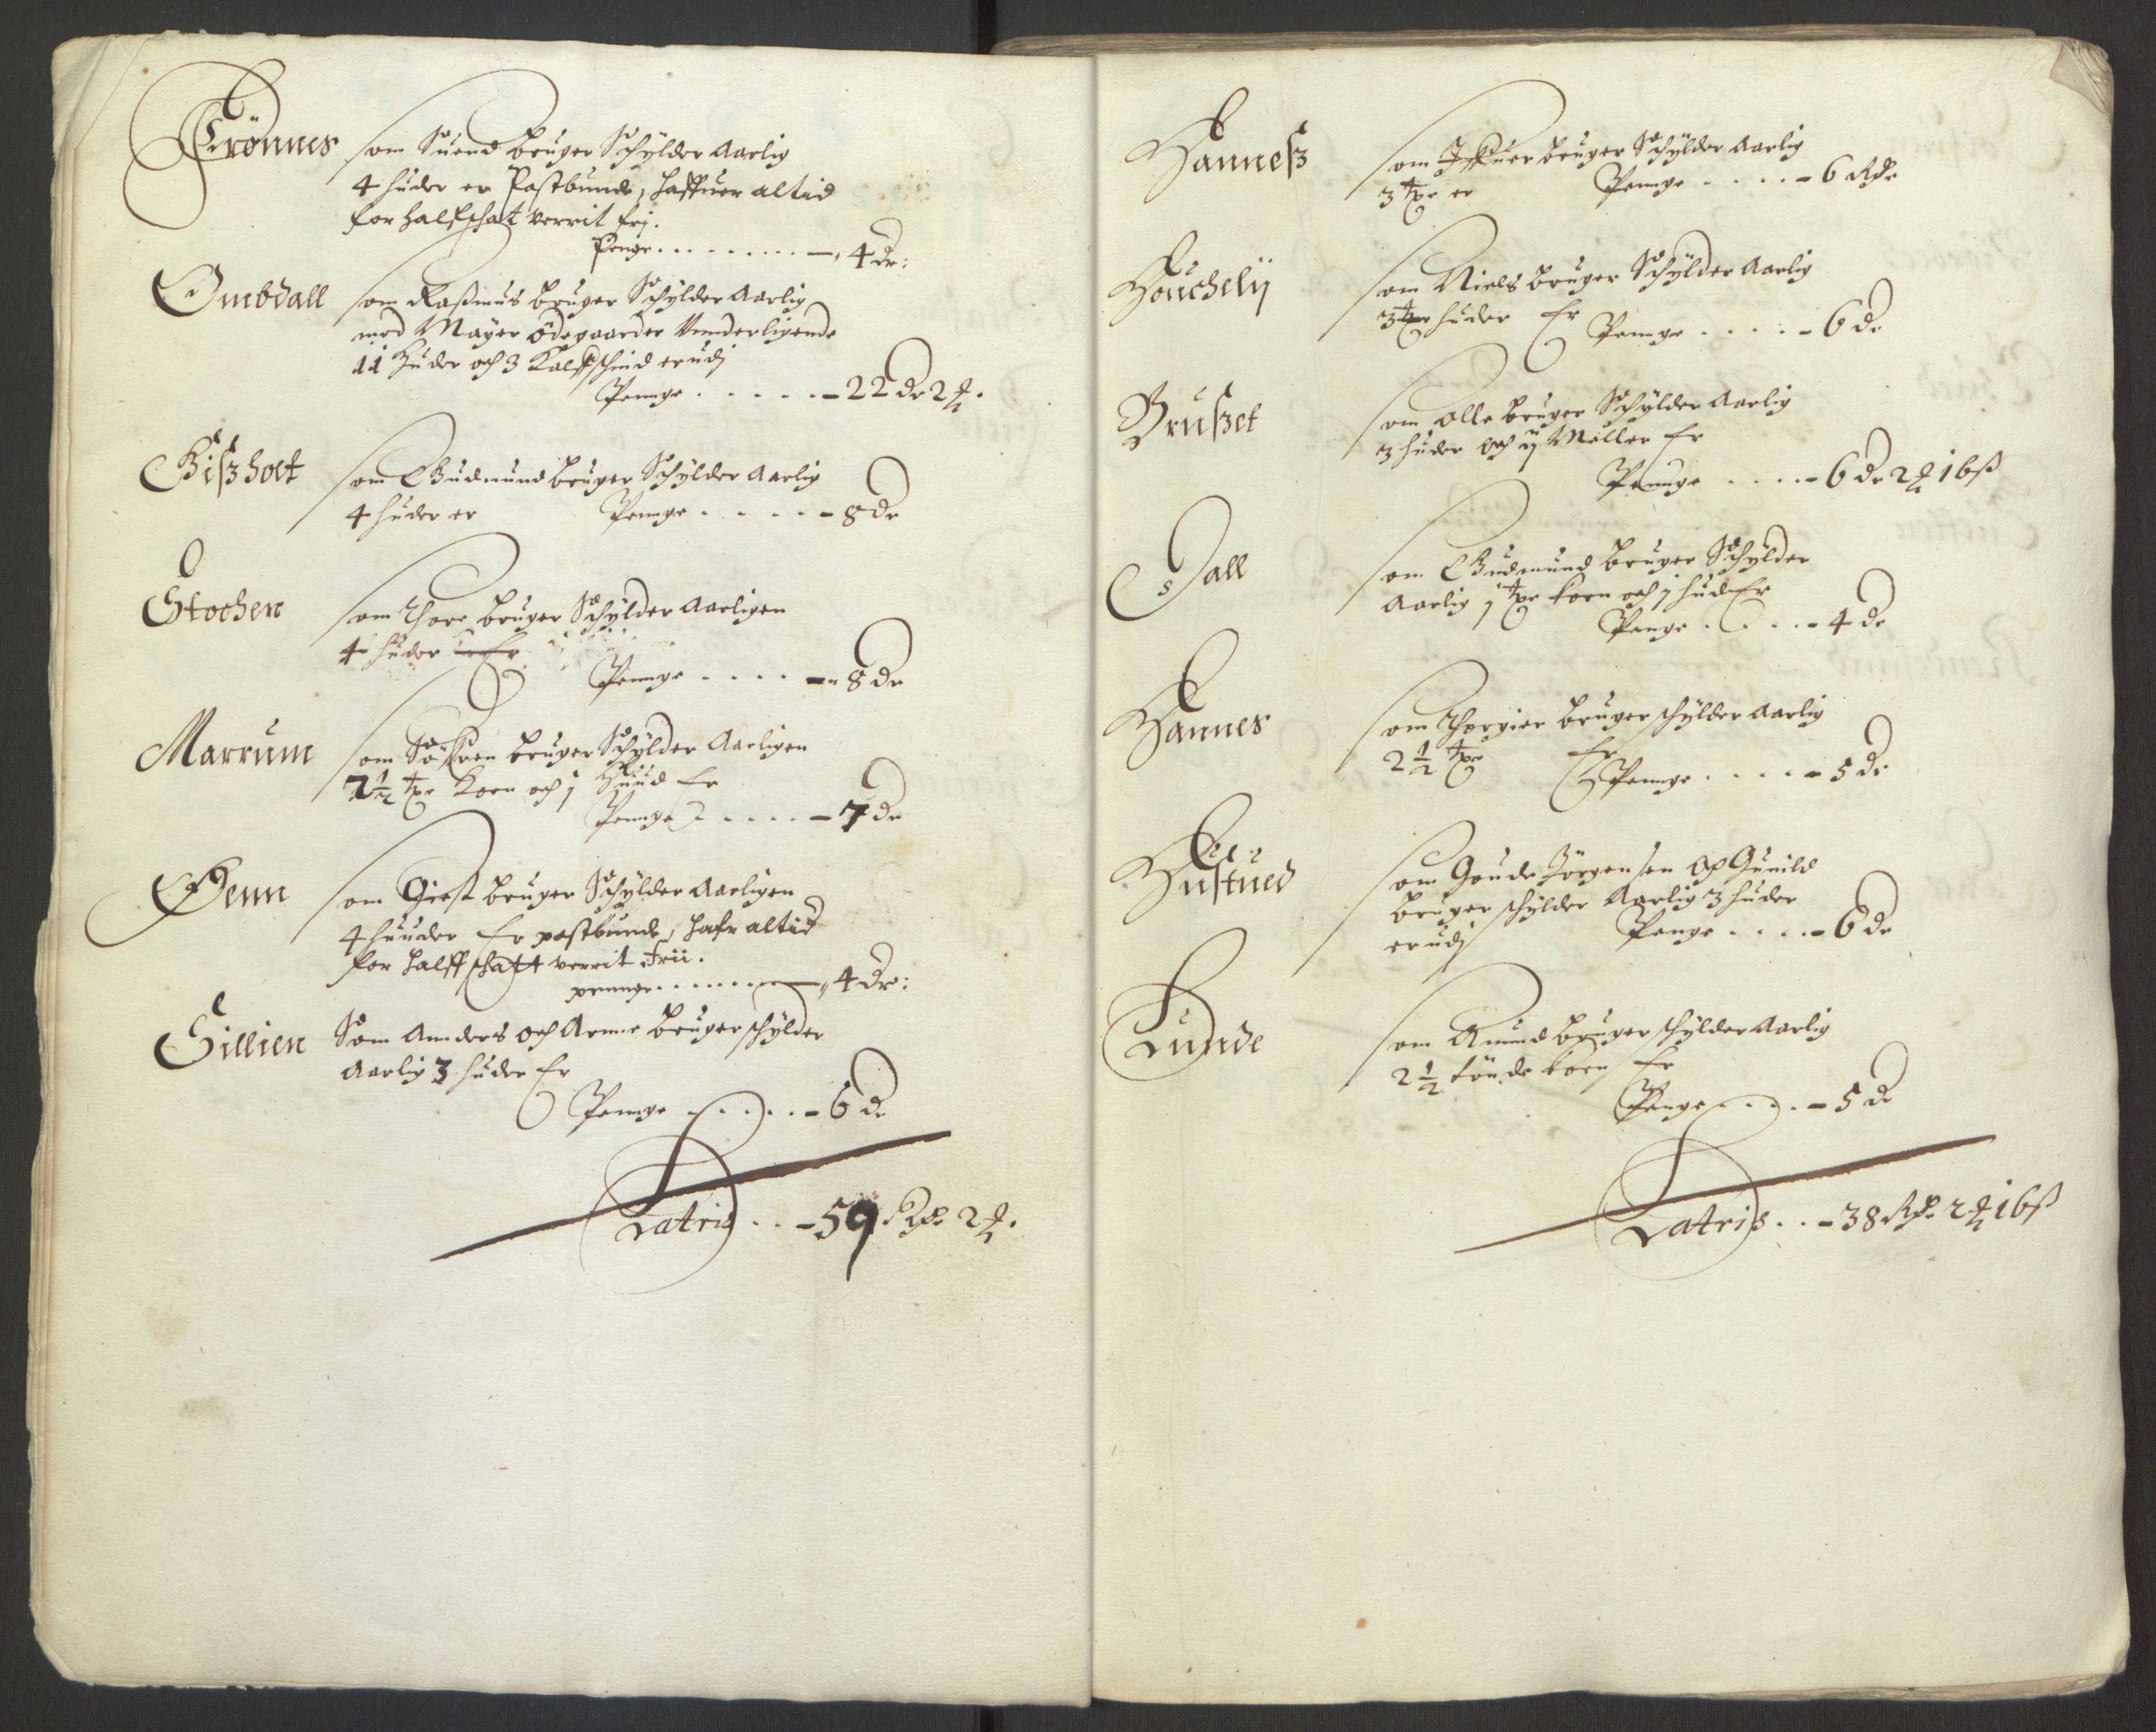 Trönnes som Suend bruger Schÿlder Aarlig
4 huder er Postbunde, haffuer altid
for halfschat verrit frj.
Penge . . . . . . . . . 4 dr:
Ombdall som Raßmus bruger Schÿlder Aarlig
med Mayer ödegaarder Vnderligende
11 Huder och 3 Kalfschind er udj
Penge . . . . . . 22 dr 2 ₰.
Bißholt som Gudmund bruger Schÿlder Aarlig
4 huder er Penge . . . . . 8 dr
Stochen som Thore bruger Schÿlder Aarligen
4 huder Er
Penge . . . . . 8 dr
Marrum som Söffren bruger Schÿlder Aarligen
2½ tpr Korn och j Huud Er
Penge . . . . . 7 dr
Henn som Giest bruger Schÿlder Aarligen
4 huuder Er postbunde, hafr altid
for halff schatt verrit frii.
penge . . . . . . . 4 dr:
Sillien Som Anders och Arne bruger schÿlder
Aarlig 3 huder Er
Penge . . . . . 6 dr
Latris . . 59 Rdr 2 ₰.
Hanneß som Iffuer bruger Schÿlder Aarlig
3 tpr er Penge . . . . . 6 Rdr
Houchelÿ som Niels bruger Schÿlder Aarlig
3 huder Er Penge . . . . . 6 dr
Brußet som Olle bruger Schÿlder Aarlig
3 huder och ij Möller Er
Penge . . . . 6 dr 2 ₰ 16 ß
Dall som Gudmund bruger Schÿlder
Aarlig j tpr korn och j hud Er
Penge . . . . . 4 dr
Hannes som Thorgier bruger schÿlder Aarlig
2½ tpr Er
Penge . . . . . 5 dr
Hustued som Goude Jörgensen och Gunild
bruger schÿlder Aarlig 3 huder
er udj Penge . . . . . 6 dr
Lunde som Amund bruger schÿlder Aarlig
2½ tönde korn Er
Penge . . . . 5 dr
Latris . . 38 Rdr 2 ₰ 16 ß